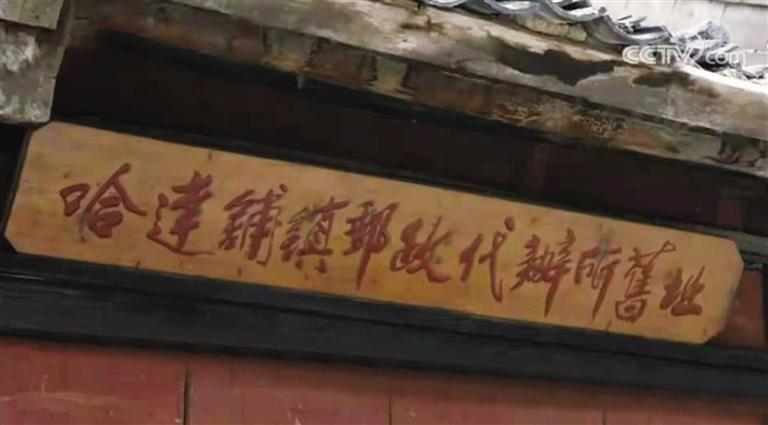 CCTV.com
哈達鋪鎮郵政代辦所舊址